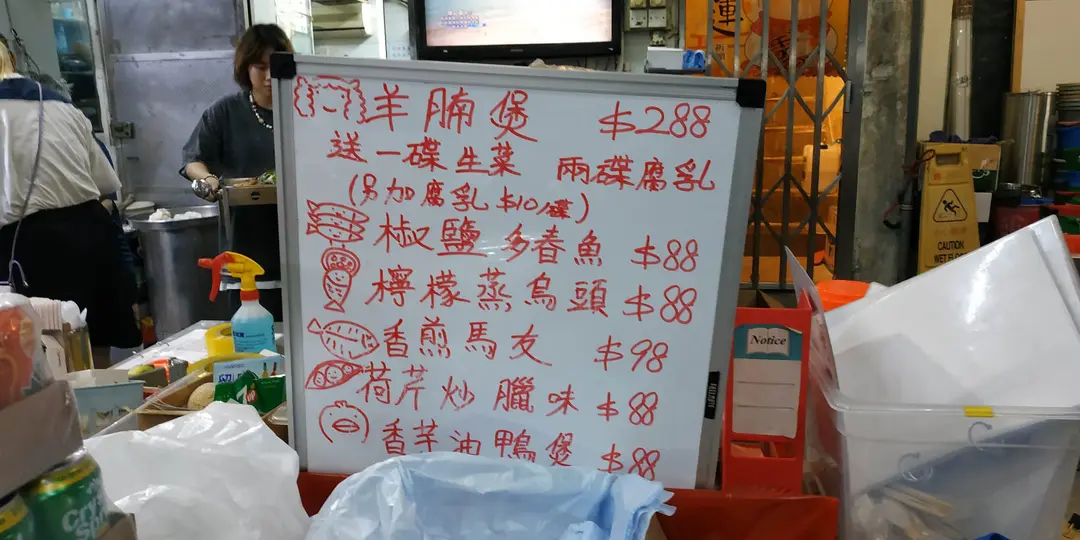 羊腩煲 $288
送一碟生菜 兩碟腐乳
(另加腐乳 $10/碟)
椒鹽多春魚 $88
檸檬蒸烏頭 $88
香煎馬友 $98
荷芹炒臘味 $88
香芋油鴨煲 $88
Notice
CAUTION
WET FLOOR